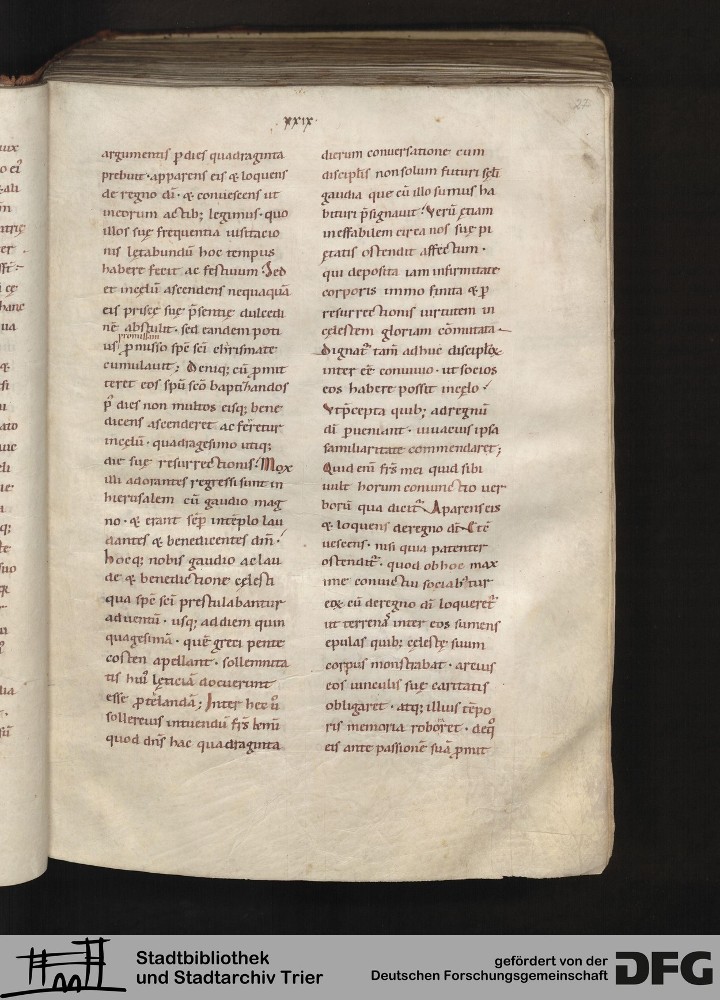 xxix
27
argumentis ꝑdies quadraginta
prebuit · apparens eis & loquens
de regno dī · & conuescens ut
in eorum actib; legimus · quo
illos suę frequentia uisitacio
nis lętabundū hoc tempus
habere fecit ac festiuum · Sed
et in cęlū ascendens nequaquā
eis priscę suę p̄sentię dulcedi
nē abstulit · sed eandem poti
promissam
us p̄misso spē scī chrismate
cumulauit; Deniq; cū ꝓmit
teret eos spū scō baptizandos
p̕ dies non multos eisq; bene
dicens ascenderet ac ferretur
in cęlū · quadragesimo utiq;
die suę resurrectionis · Mox
illi adorantes regressi sunt in
hierusalem cū gaudio mag
no · & erant sēp in tēplo lau
dantes & benedicentes dm̄ ·
hocq; nobis gaudio ac lau
de & benedictione cęlesti
qua spē scī prestulabantur
aduentū · usq; ad diem quin
quagesimā · quē greci pente
costen apellant · sollemnita
tis hui̕ lęticiā docuerunt
esse ꝓtelandā; Inter hec ū
sollercius intuendū frs̄ kmī
quod dn̄s hac quadraginta
dierum conuersatione cum
disciplis non solum futuri sclī
gaudia que cū illo sumus ha
bituri p̄signauit · Verū ętiam
ineffabilem circa nos suę pi
ętatis ostendit affectum ·
qui deposita iam infirmitate
corporis immo finita & ꝑ
resurrectionis uirtutem in
cęlestem gloriam cōmutata
dignat̕ tam̄ adhuc disciploꝝ
inter eē conuiuio · ut socios
eos habere possit in cęlo ·
Vt p̄cepta quib; ad regnū
dī ꝑueniant · uiuacius ipsa
familiaritate commendaret;
Quid enī frs̄ mei quid sibi
uult horum coniunctio uer
borū qua dicit̕ Aparens eis
& loquens de regno dī · Cōe
uescens · nisi quia patenter
ostendit̕ · quod ob hoc max
ime conuictui sociabat̕ur
eoꝝ cū de regno dī loqueret̕
ut terrena s̕ inter eos sumens
epulas quib; cęlestę suum
corpus monstrabat · arcius
eos uinculis suę caritatis
obligaret · atq; illius tēpo
ris memoria roboret · deq̕
eis ante passionē suā ꝓmit
Stadtbibliothek
und Stadtarchiv Trier
gefördert von der
Deutschen Forschungsgemeinschaft
DFG